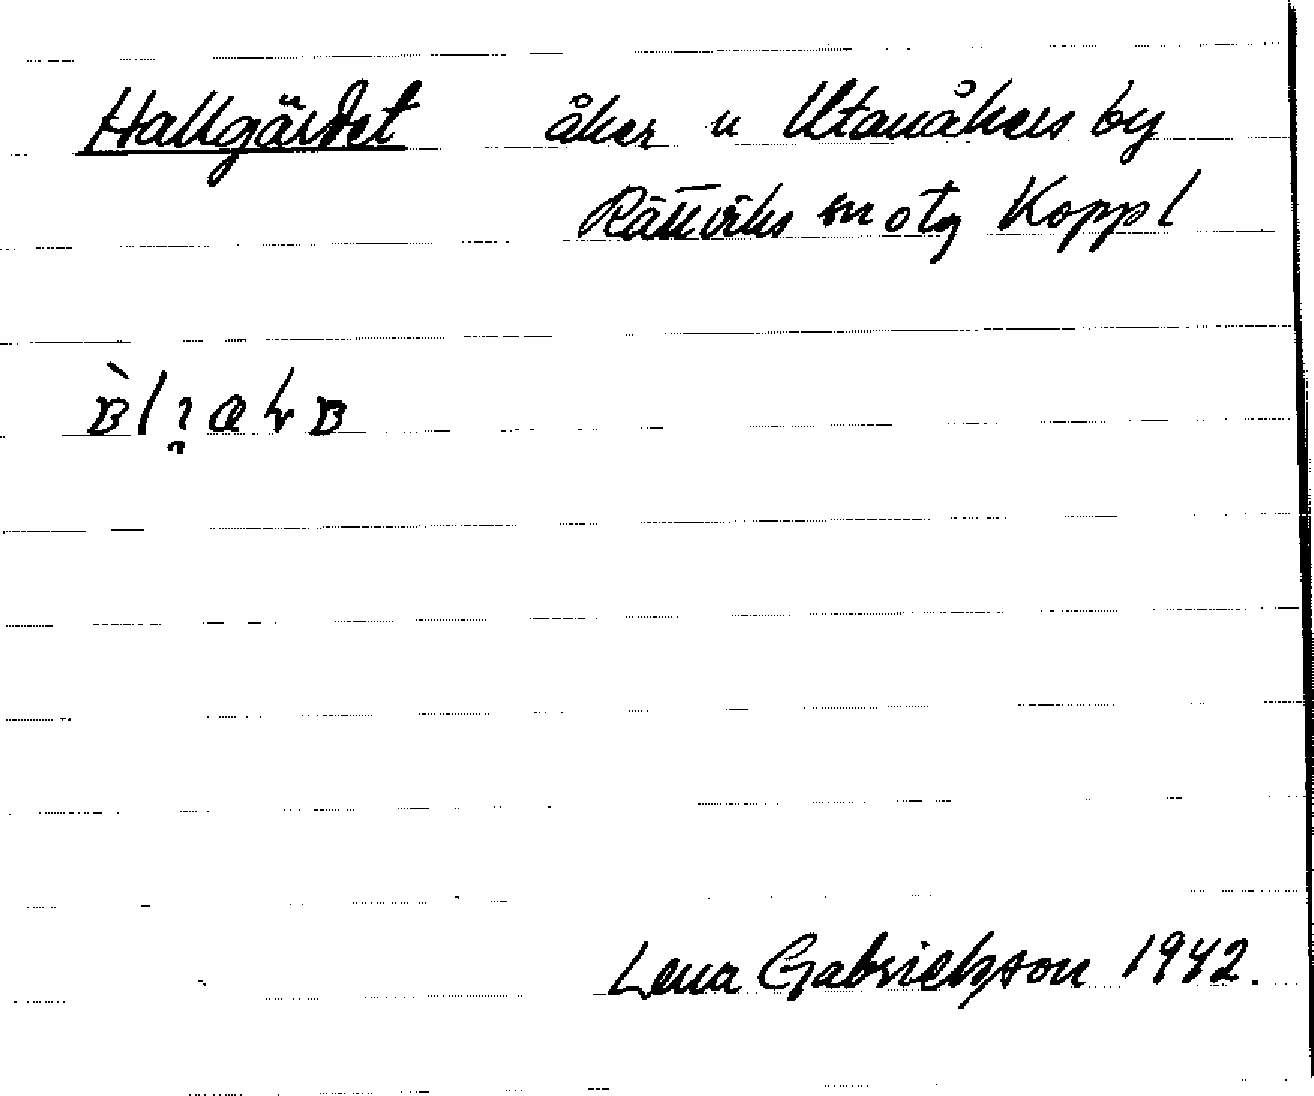 Hallgärdet åker u Utanåkers by
Rättviks sn o tg Koppl
Lena Gabrielsson 1942.